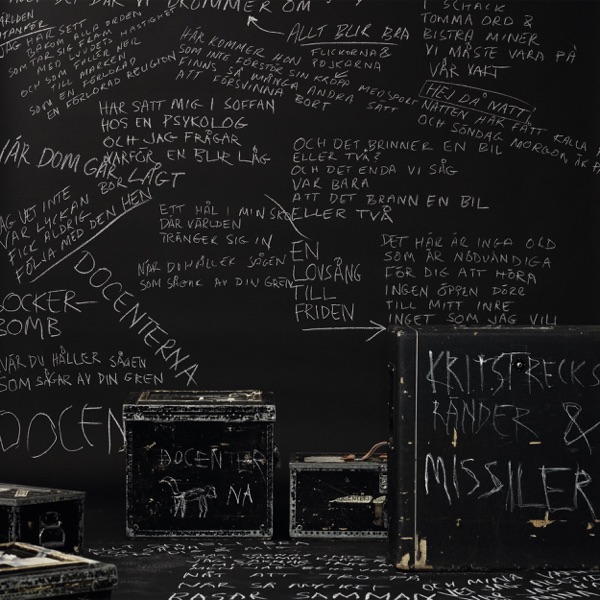 VÄRLDEN
UTANFÖR
JAG HAR SETT
BAKOM ALLA ORDEN
SOM TAR SIG FRAM
MED LJUDETS HASTIGHET
OCH SOM FALLER NER
TILL MARKEN
SOM EN FÖRLORAD
EN FÖRLORAD RELIGION
DÄR VI DRÖMMER OM
ALLT BLIR BRA
FLICKORNA &
POJKARNA
HÄR KOMMER NÅN
SOM INTE FÖRSTÅR SIN KROPP
FINNS SÅ MÅNGA ANDRA SÄTT
ATT FÖRSVINNA BORT
MED SPORT
I SCHACK
TOMMA ORD &
BISTRA MINER
VI MÅSTE VARA PÅ
VÅR VAKT
HEJ DÅ NATT!
NATTEN HAR FÅTT KALLA
OCH SÖNDAG MORGON ÄR
HAR SATT MIG I SOFFAN
HOS EN PSYKOLOG
OCH JAG FRÅGAR
VARFÖR EN BLIR LÅG
BOR LÅGT
NÄR DOM GÅR
JAG VET INTE
VAR LYCKAN
FICK ALDRIG
FÖLJA MED DEN HEM
ETT HÅL I MIN SKO
DÄR VÄRLDEN
TRÄNGER SIG IN
NÄR DU HÅLLER SÅGEN
SOM SÅGAR AV DIN GREN
OCH DET BRINNER EN BIL
ELLER TVÅ?
OCH DET ENDA VI SÅG
VAR BARA
ATT DET BRANN EN BIL
ELLER TVÅ
EN
LOVSÅNG
TILL
FRIDEN
DET HÄR ÄR INGA ORD
SOM ÄR NÖDVÄNDIGA
FÖR DIG ATT HÖRA
INGEN ÖPPEN DÖRR
TILL MITT INRE
INGET SOM JAG VILL
SOCKER-
BOMB
DOCENTERNA
NÄR DU HÅLLER SÅGEN
SOM SÅGAR AV DIN GREN
DOCEN
DOCENTER
NA
KRITSTRECKS
RÄNDER &
MISSILER
NÄT ATT
RASAR SAMMAN